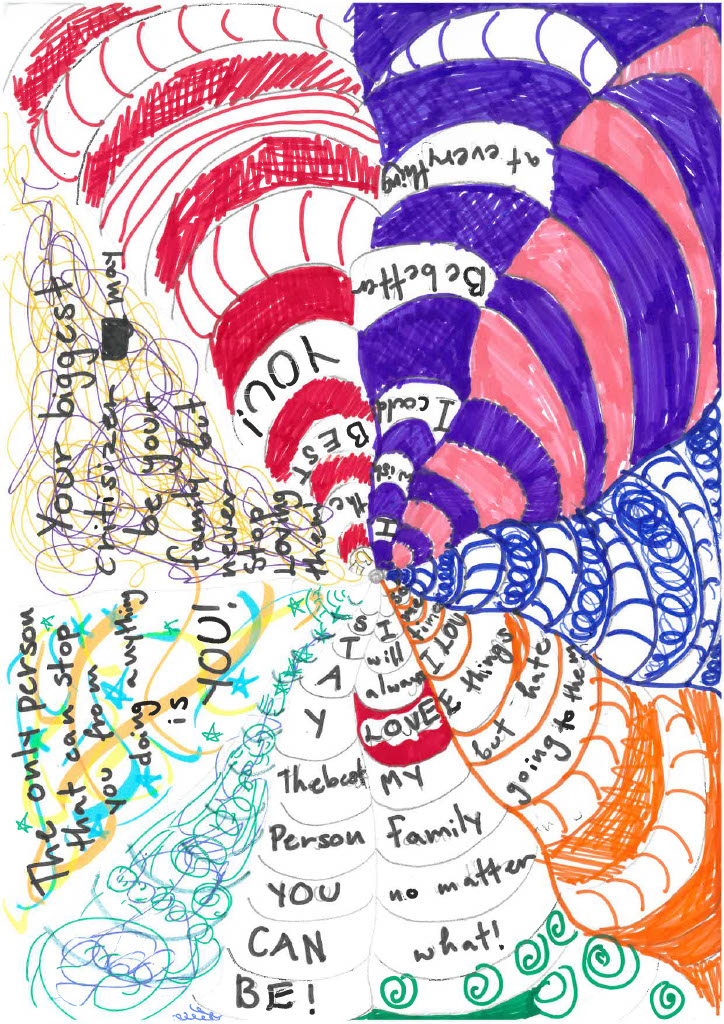 Your biggest
critisizer may
be your
family but
never
stop
Loving
them
The only person
that can stop
you from
doing anything
is
YOU!
the
BEST
YOU!
wish
I could
Be better
at everything
time
I LOV
E things
but hate
going to them
I
will
always
LOVE
MY
family
no matter
what!
S
T
A
Y
The best
Person
YOU
CAN
BE!